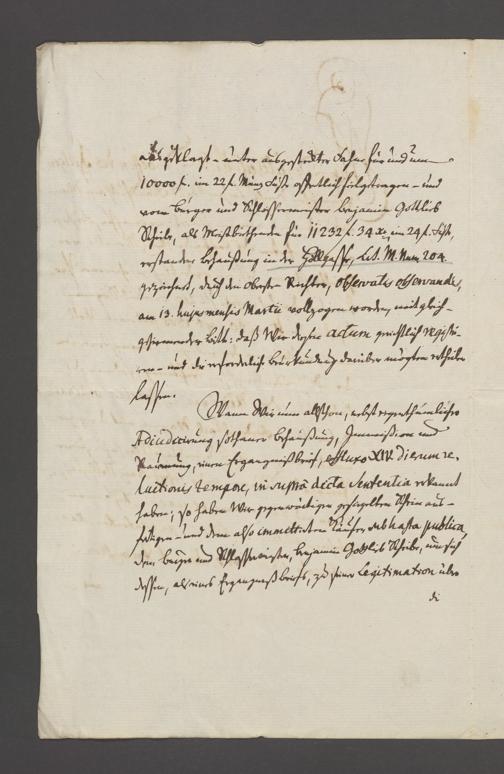 ausgeklagt - unter ausgesteckter Fahne für und um
10000 f. im 22 f. Münz Fuß öffentlich feilgetragen - und
vom Burger und Schlossermeister Benjamin Gottlieb
Scheibe, als Meistbiethenden für 11232 f. 34 xr. im 24 f. Fuß,
erstanden Behaußung in der Höllgasse, Lit. M. Num 204
gezeichnet, durch den Obersten Richter, observatis observandis,
am 13. hujus mensis Martii vollzogen worden, mit gleich-
geziemender Bitte: daß Wir dessen actum gerichtlich registri-
ren - und die erforderliche Beurkundung darüber ertheilen
lassen.
Wann Wir nun allschon, nebst eigenthümlicher
Adiudicirung sothaner Behaußung, Immission und
Räumung, einen Ergangnißbrief, effluxo XIV. dierum re-
luitionis tempore, in supra dicta Sententia erkannt
haben; so haben Wir gegenwärtigen gesiegelten Schein aus-
fertigen - und dem also immittirten Käufer sub hasta publica,
dem Burger und Schlossermeister, Benjamin Gottlieb Scheibe, um sich
dessen, als eines Ergangnißbriefs, zu seiner Legitimation über
die